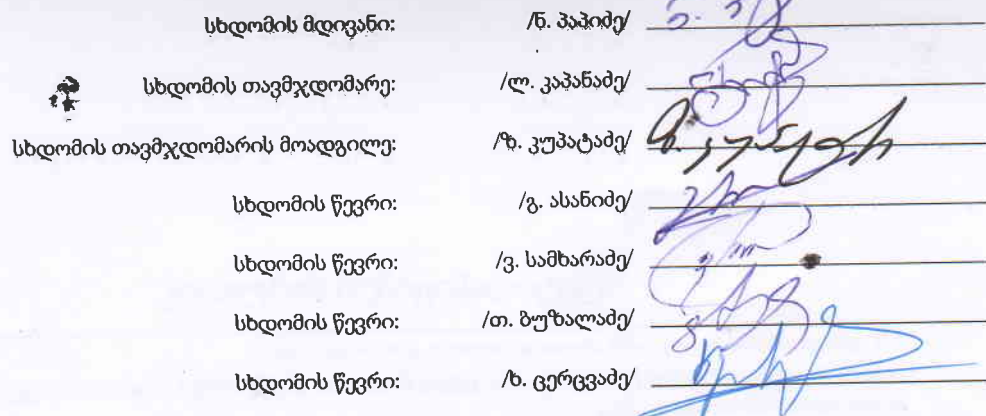 სხდომის მდივანი: /ნ. პაპიძე/
სხდომის თავმჯდომარე: /ლ. კაპანაძე/
სხდომის თავმჯდომარის მოადგილე: /ზ. კუპატაძე/
სხდომის წევრი: /გ. ასანიძე/
სხდომის წევრი: /ვ. სამხარაძე/
სხდომის წევრი: /თ. ბუზალაძე/
სხდომის წევრი: /ხ. ცერცვაძე/